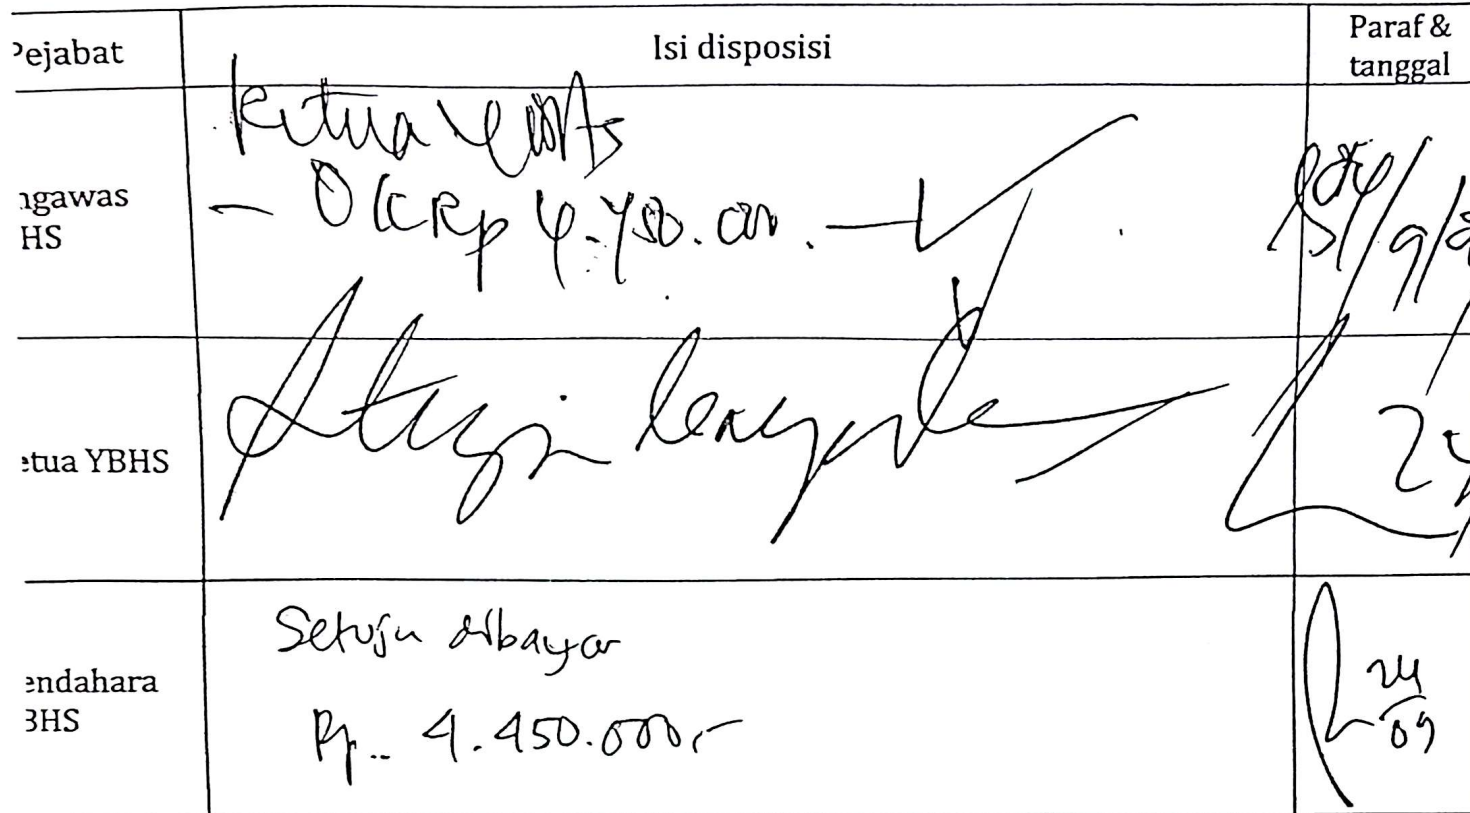 Pejabat
Isi disposisi
Paraf &
tanggal
ngawas
HS
Ketua YBHS
- OK Rp 4.450.000.-
etua YBHS
24
endahara
BHS
Setuju dibayar
Rp.. 4.450.000,-
24
09